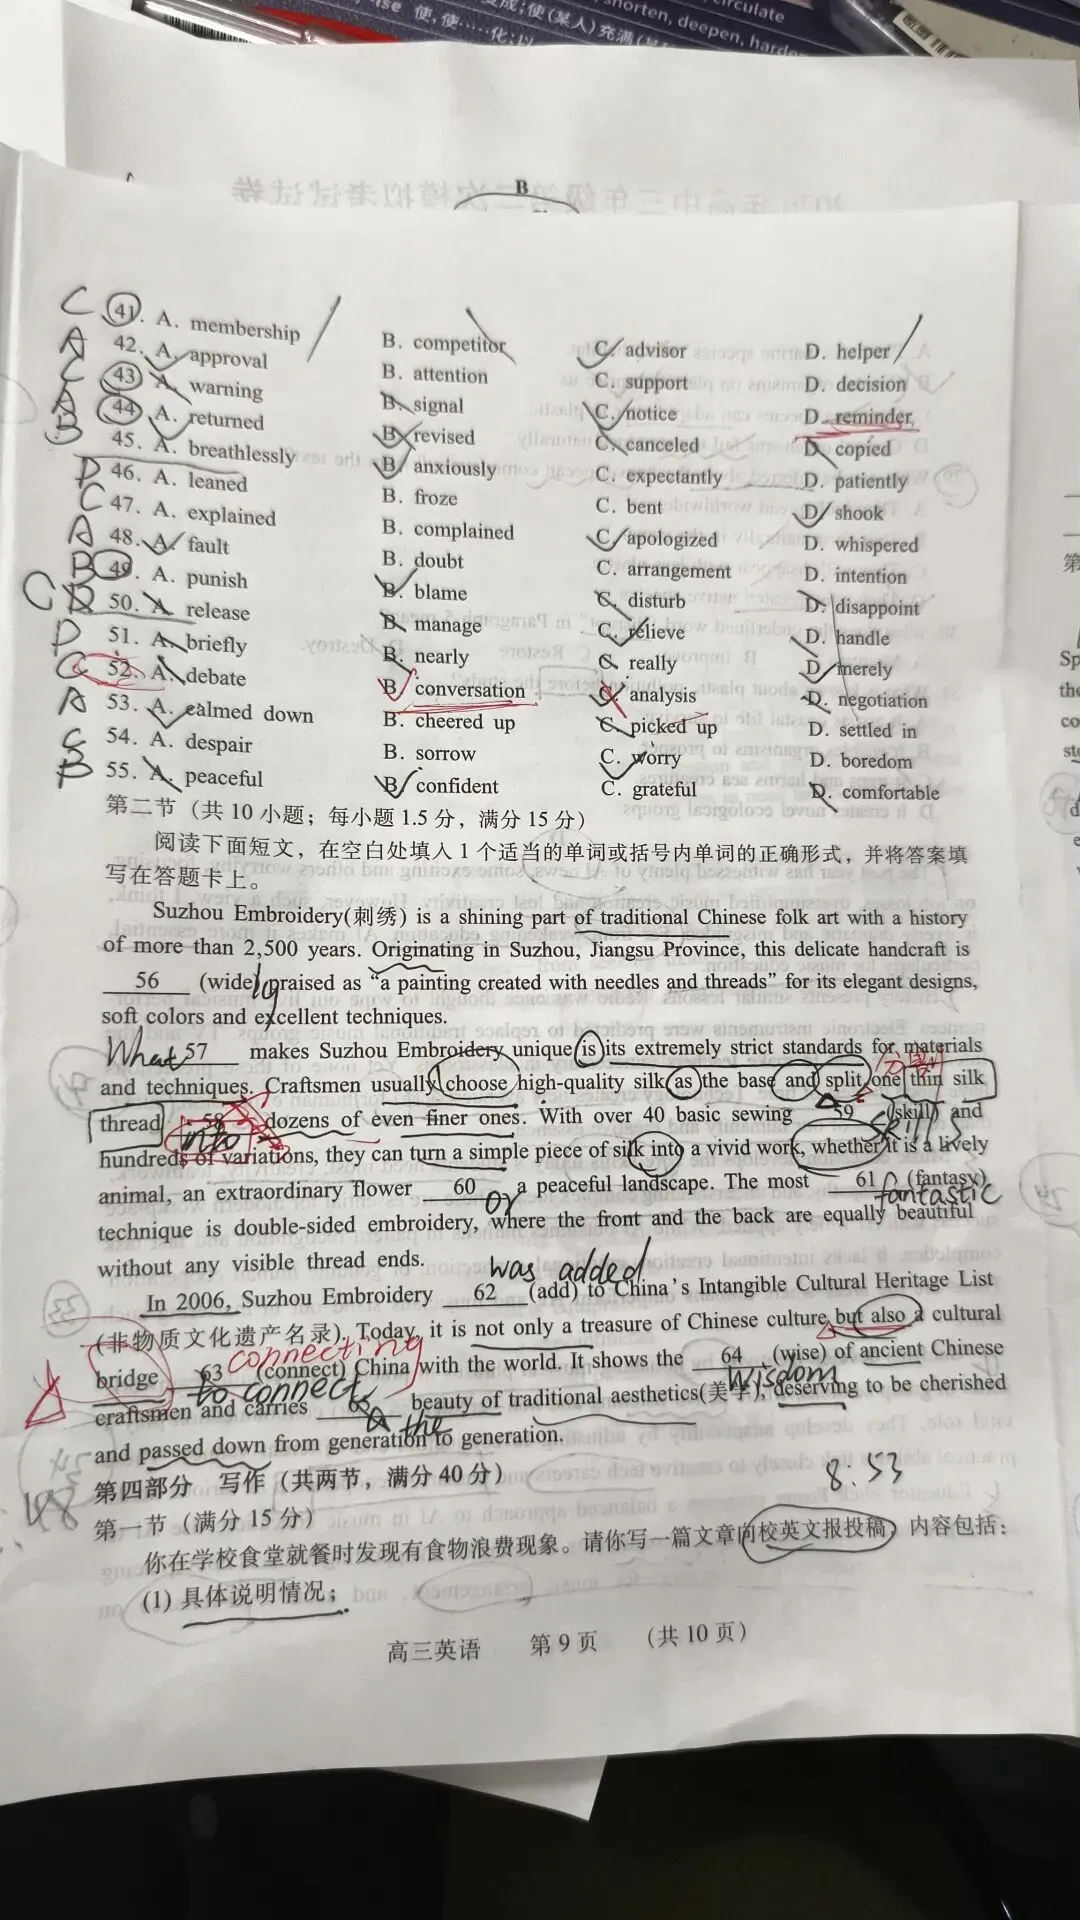 shorten, deepen, harden
B
C 41. A. membership B. competitor C. advisor D. helper
A 42. A. approval B. attention C. support D. decision
C 43. A. warning B. signal C. notice D. reminder
A 44. A. returned B. revised C. canceled D. copied
B 45. A. breathlessly B. anxiously C. expectantly D. patiently
D 46. A. leaned B. froze C. bent D. shook
C 47. A. explained B. complained C. apologized D. whispered
A 48. A. fault B. doubt C. arrangement D. intention
B 49. A. punish B. blame C. disturb D. disappoint
C 50. A. release B. manage C. relieve D. handle
D 51. A. briefly B. nearly C. really D. merely
C 52. A. debate B. conversation C. analysis D. negotiation
A 53. A. calmed down B. cheered up C. picked up D. settled in
C 54. A. despair B. sorrow C. worry D. boredom
B 55. A. peaceful B. confident C. grateful D. comfortable
第二节（共 10 小题；每小题 1.5 分，满分 15 分）
阅读下面短文，在空白处填入 1 个适当的单词或括号内单词的正确形式，并将答案填
写在答题卡上。
Suzhou Embroidery(刺绣) is a shining part of traditional Chinese folk art with a history
of more than 2,500 years. Originating in Suzhou, Jiangsu Province, this delicate handcraft is
56 (wide) ly praised as “a painting created with needles and threads” for its elegant designs,
soft colors and excellent techniques.
What 57 makes Suzhou Embroidery unique is its extremely strict standards for materials
分割
and techniques. Craftsmen usually choose high-quality silk as the base and split one thin silk
thread 58 dozens of even finer ones. With over 40 basic sewing 59 (skill) and
into skills
hundreds of variations, they can turn a simple piece of silk into a vivid work, whether it is a lively
animal, an extraordinary flower 60 a peaceful landscape. The most 61 (fantasy)
or fantastic
technique is double-sided embroidery, where the front and the back are equally beautiful
without any visible thread ends.
was added
In 2006, Suzhou Embroidery 62 (add) to China's Intangible Cultural Heritage List
(非物质文化遗产名录). Today, it is not only a treasure of Chinese culture but also a cultural
connecting
bridge 63 (connect) China with the world. It shows the 64 (wise) of ancient Chinese
to connect wisdom
craftsmen and carries 65 beauty of traditional aesthetics(美学), deserving to be cherished
a the
and passed down from generation to generation.
8:53
第四部分 写作（共两节，满分 40 分）
第一节（满分 15 分）
你在学校食堂就餐时发现有食物浪费现象。请你写一篇文章向校英文报投稿，内容包括：
(1) 具体说明情况；
高三英语 第 9 页 （共 10 页）